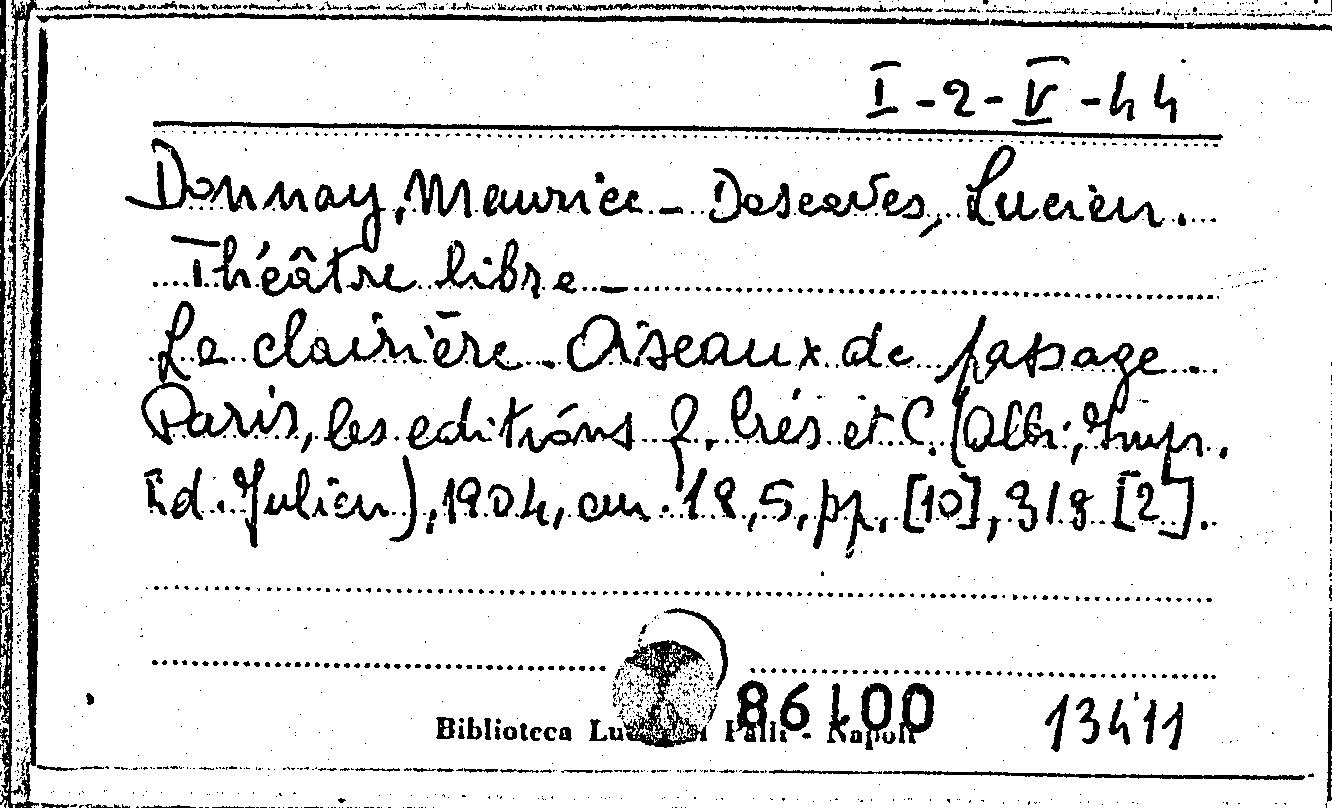 I-2-V-44
Donnay, Maurice - Descaves, Lucien.
Théâtre libre -
La clairière. Oiseaux de passage.
Paris, les editions G. Crés et C. (Albi, Impr.
Ed. Julien), 1904, cm. 18,5, pp. [10], 318 [2].
86100 13411
Biblioteca Palli - Napoli